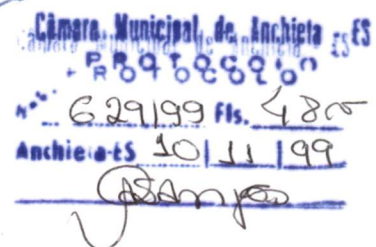 Câmara Municipal de Anchieta - ES
PROTOCOLO
Nº 629/99 Fls. 48
Anchieta-ES 10/11/99